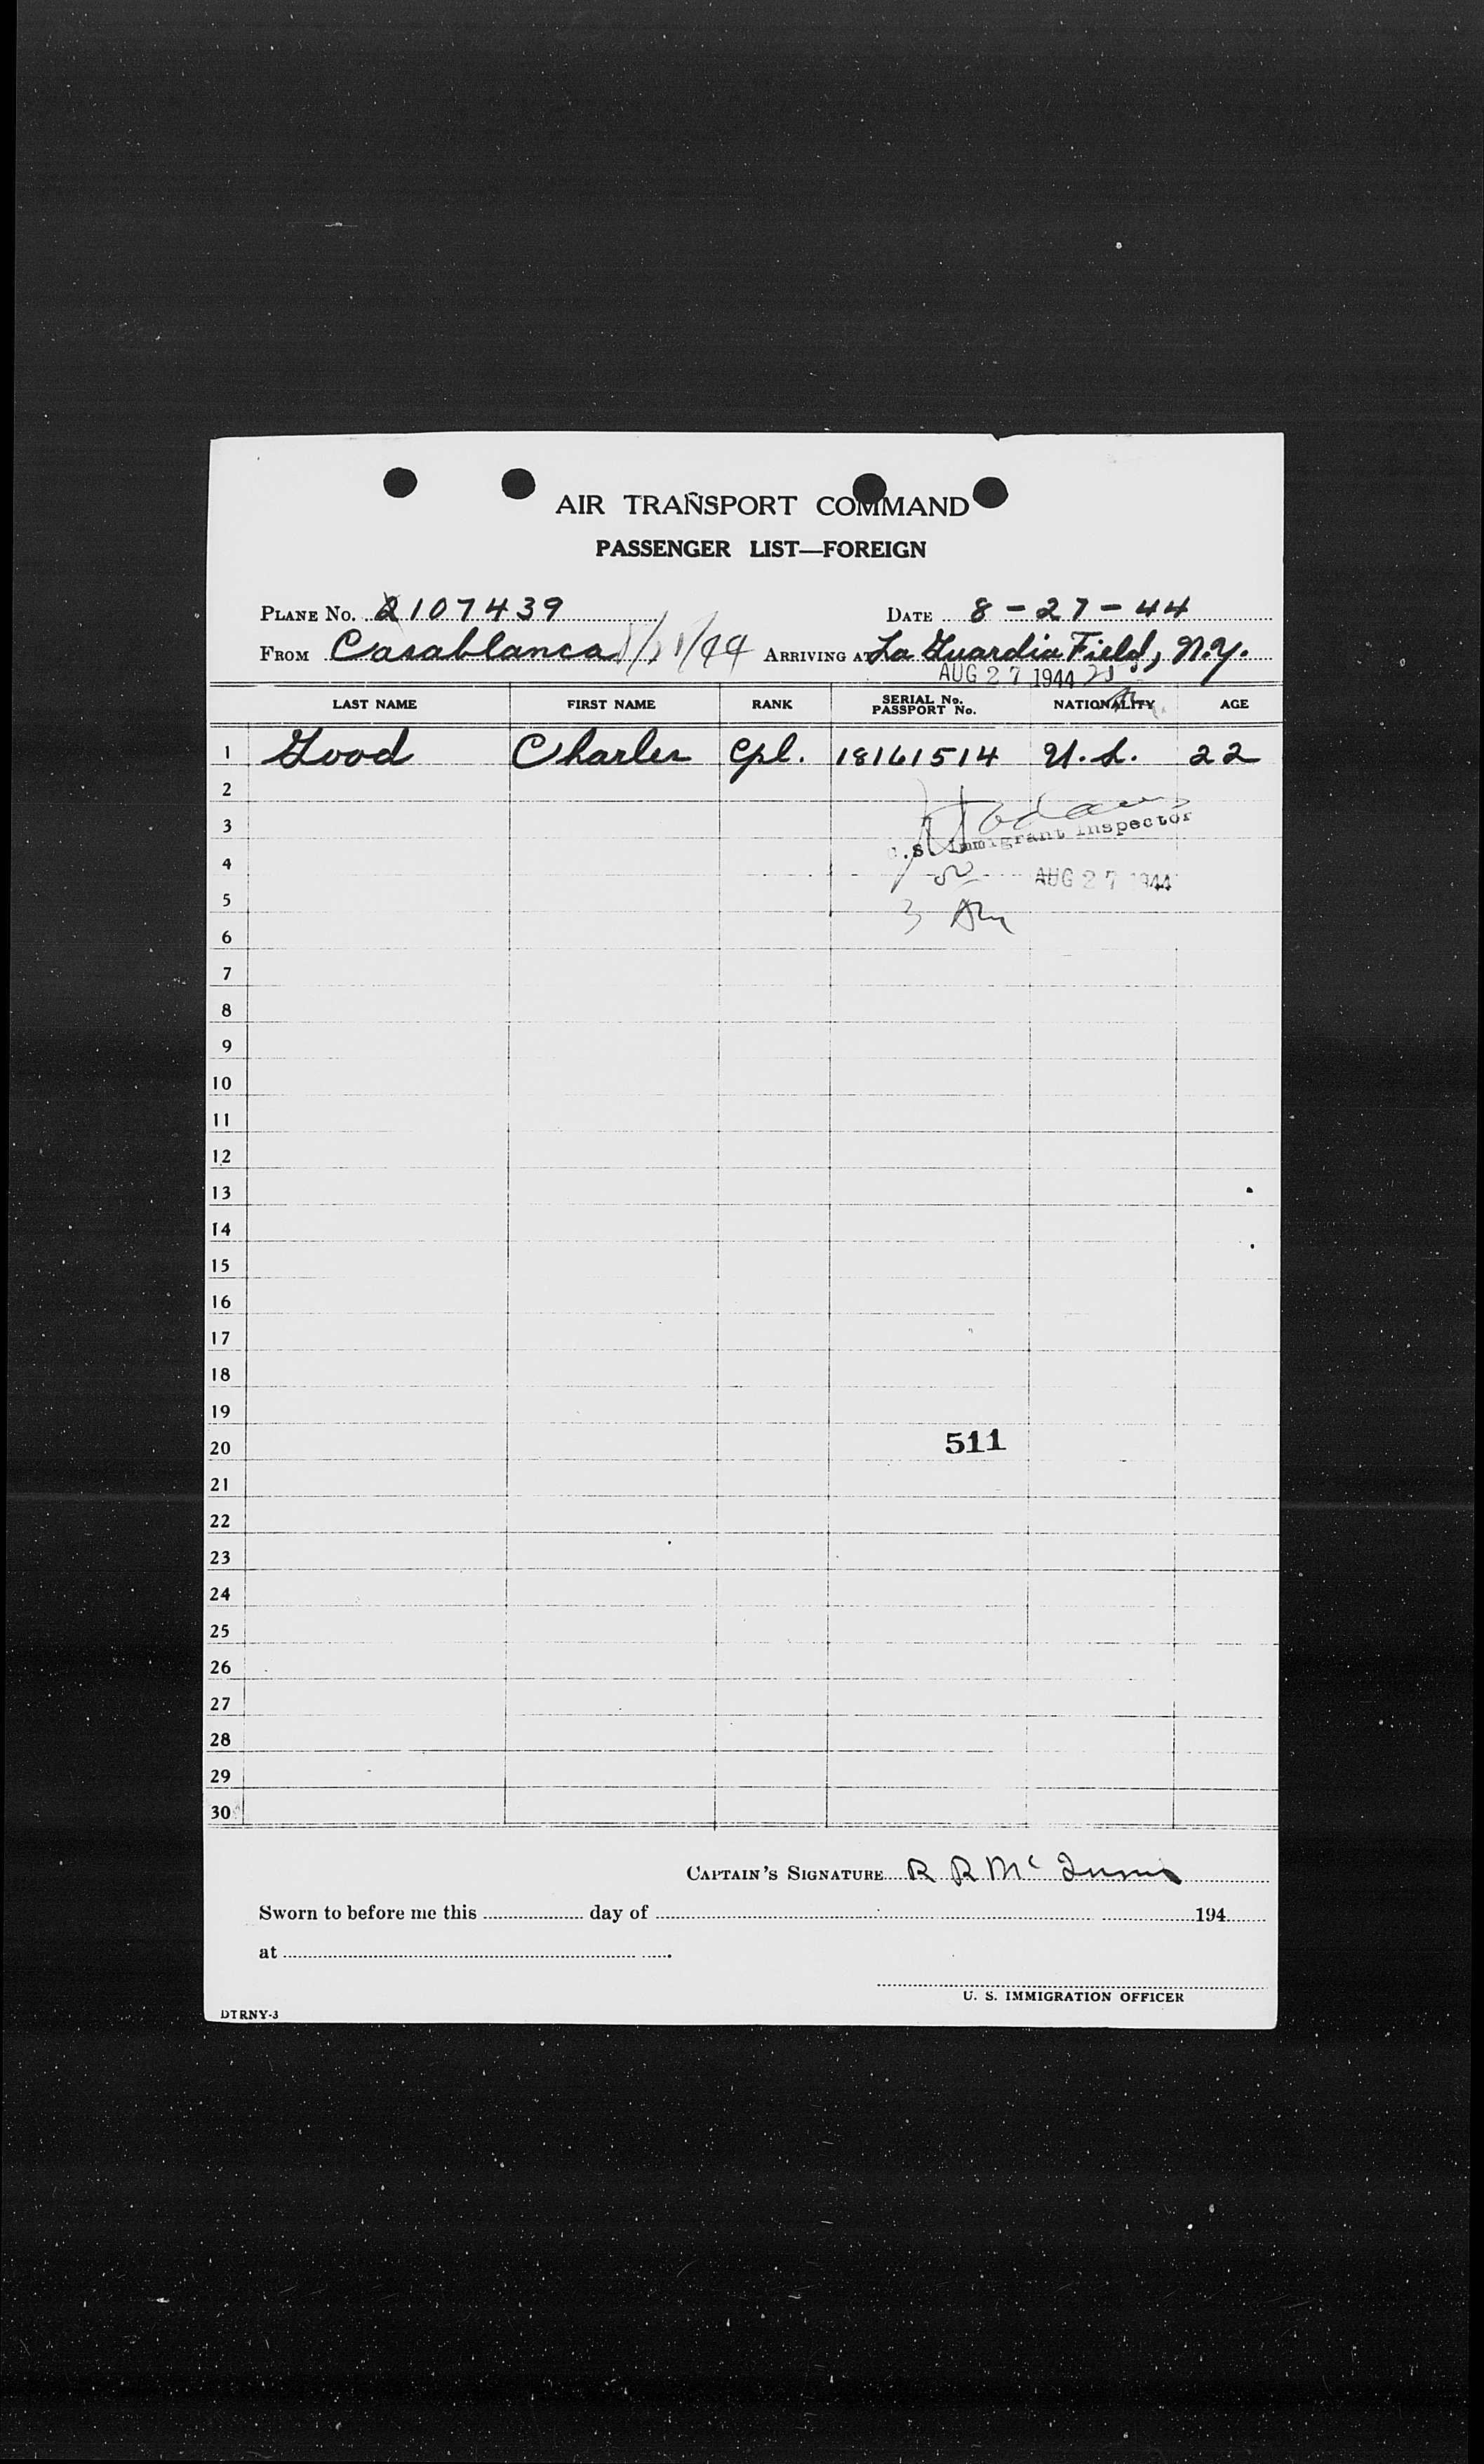 AIR TRANSPORT COMMAND
PASSENGER LIST—FOREIGN
PLANE No. 2107439 DATE 8-27-44
FROM Casablanca ARRIVING AT La Guardia Field, N.Y.
AUG 27 1944
LAST NAME FIRST NAME RANK SERIAL No. PASSPORT No. NATIONALITY AGE
1 Good Charles Cpl. 18161514 U.S. 22
2
3
U.S. Immigrant Inspector
4
AUG 27 1944
5
6
7
8
9
10
11
12
13
14
15
16
17
18
19
20 511
21
22
23
24
25
26
27
28
29
30
CAPTAIN'S SIGNATURE R R McInnis
Sworn to before me this day of 194
at
U. S. IMMIGRATION OFFICER
DTRNY-3